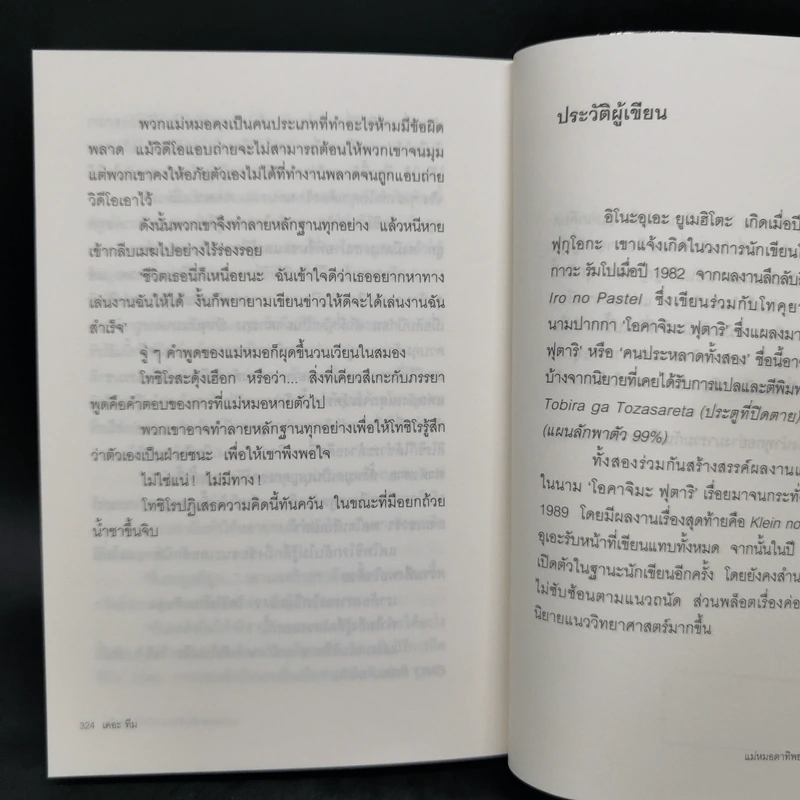 พวกแม่หมอคงเป็นคนประเภทที่ทำอะไรห้ามมีข้อผิด
พลาด แม้วิดีโอแอบถ่ายจะไม่สามารถต้อนให้พวกเขาจนมุม
แต่พวกเขาคงให้อภัยตัวเองไม่ได้ที่ทำงานพลาดจนถูกแอบถ่าย
วิดีโอเอาไว้
ดังนั้นพวกเขาจึงทำลายหลักฐานทุกอย่าง แล้วหนีหาย
เข้ากลีบเมฆไปอย่างไร้ร่องรอย
'ชีวิตเธอนี่ก็เหนื่อยนะ ฉันเข้าใจดีว่าเธออยากหาทาง
เล่นงานฉันให้ได้ งั้นก็พยายามเขียนข่าวให้ดีจะได้เล่นงานฉัน
สำเร็จ'
จู่ ๆ คำพูดของแม่หมอก็ผุดขึ้นวนเวียนในสมอง
โทชิโรสะดุ้งเฮือก หรือว่า... สิ่งที่เคียวสึเกะกับภรรยา
พูดคือคำตอบของการที่แม่หมอหายตัวไป
พวกเขาอาจทำลายหลักฐานทุกอย่างเพื่อให้โทชิโรรู้สึก
ว่าตัวเองเป็นฝ่ายชนะ เพื่อให้เขาพึงพอใจ
ไม่ใช่แน่! ไม่มีทาง!
โทชิโรปฏิเสธความคิดนี้ทันควัน ในขณะที่มือยกถ้วย
น้ำชาขึ้นจิบ
324 เดอะ ทีม
ประวัติผู้เขียน
อิโนะอุเอะ ยูเมฮิโตะ เกิดเมื่อปี
ฟุกุโอกะ เขาแจ้งเกิดในวงการนักเขียน
กาวะ รัมโปเมื่อปี 1982 จากผลงานลึกลับ
Iro no Pastel ซึ่งเขียนร่วมกับโทคุย
นามปากกา 'โอคาจิมะ ฟุตาริ' ซึ่งแผลงมา
ฟุตาริ' หรือ 'คนประหลาดทั้งสอง' ชื่อนี้อา
บ้างจากนิยายที่เคยได้รับการแปลและตีพิมพ์
Tobira ga Tozasareta (ประตูที่ปิดตาย)
(แผนลักพาตัว 99%)
ทั้งสองร่วมกันสร้างสรรค์ผลงาน
ในนาม 'โอคาจิมะ ฟุตาริ' เรื่อยมาจนกระทั่ง
1989 โดยมีผลงานเรื่องสุดท้ายคือ Klein no
อุเอะรับหน้าที่เขียนแทบทั้งหมด จากนั้นในปี
เปิดตัวในฐานะนักเขียนอีกครั้ง โดยยังคง
ไม่ซับซ้อนตามแนวถนัด ส่วนพล็อตเรื่อง
นิยายแนววิทยาศาสตร์มากขึ้น
แม่หมอตาทิพย์